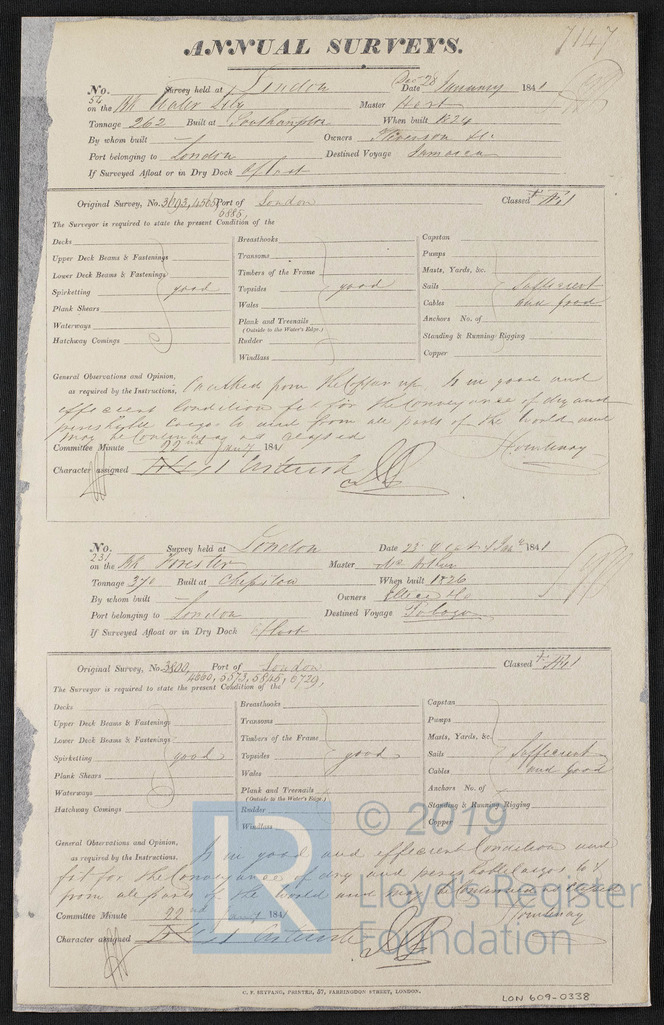 7147
ANNUAL SURVEYS.
No. 52 Survey held at London Date Dec 28 January 1841
on the Bk Water Lily Master Hart
Tonnage 262 Built at Southampton When built 1824
By whom built — Owners
Port belonging to London Destined Voyage Jamaica
If Surveyed Afloat or in Dry Dock Afloat
Original Survey, No. 3693, 4565 Port of London Classed
5885,
The Surveyor is required to state the present Condition of the
Decks Breasthooks Capstan
Upper Deck Beams & Fastenings Transoms Pumps
Lower Deck Beams & Fastenings Timbers of the Frame Masts, Yards, &c.
Spirketting good Topsides good Sails Sufficient
Plank Shears Wales Cables and good
Waterways Plank and Treenails Anchors No. of
(Outside to the Water's Edge.)
Hatchway Comings Rudder Standing & Running Rigging
Windlass Copper
General Observations and Opinion,
as required by the Instructions, Caulked from the Copper up, Is in good and
efficient Condition fit for the Conveyance of dry and
perishable Cargo to and from all parts of the World and
may be Continued as Classed
Courtenay
Committee Minute 22nd Jany 1841
Character assigned
No. 231 Survey held at London Date 23 1841
on the Bk Forester Master
Tonnage 370 Built at Chepstow When built 1826
By whom built — Owners
Port belonging to London Destined Voyage Tobago
If Surveyed Afloat or in Dry Dock Afloat
Original Survey, No. 3800, Port of London Classed
4660, 5573, 5846, 6729,
The Surveyor is required to state the present Condition of the
Decks Breasthooks Capstan
Upper Deck Beams & Fastenings Transoms Pumps
Lower Deck Beams & Fastenings Timbers of the Frame Masts, Yards, &c.
Spirketting good Topsides good Sails Sufficient
Plank Shears Wales Cables and good
Waterways Plank and Treenails Anchors No. of
(Outside to the Water's Edge.)
Hatchway Comings Rudder Standing & Running Rigging
Windlass Copper
General Observations and Opinion,
as required by the Instructions. Is in good and efficient Condition and
fit for the Conveyance of dry and perishable Cargos to &
from all parts of the World and may be Continued as Classed
Courtenay
Committee Minute 22nd Jany 1841
Character assigned
LR
© 2019
Lloyd's Register
Foundation
C. F. SEYFANG, PRINTER, 57, FARRINGDON STREET, LONDON.
LON 609-0338